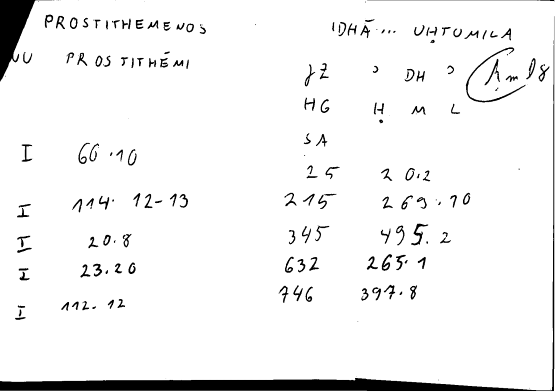 PROSTITHEMENOS IDHĀ... UḤTUMILA
NU PROSTITHĒMI JZ ɔ DH ɔ
HG Ḥ M L
SA
I 66.10 25 20.2
I 114. 12-13 215 269.10
I 20.8 345 495.2
I 23.20 632 265.1
I 112.12 746 397.8